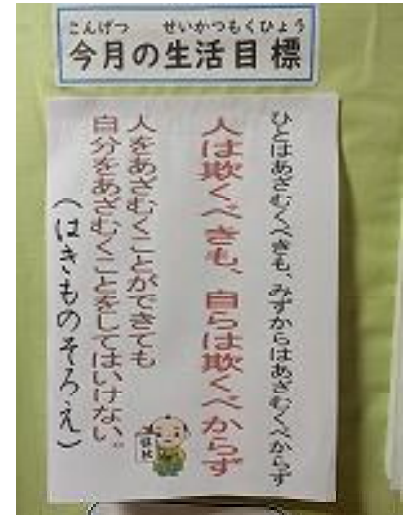 こんげつ せいかつもくひょう
今月の生活目標
ひとはあざむくべきも、みずからはあざむくべからず
人は欺くべきも、自らは欺くべからず
人をあざむくことができても
自分をあざむくことをしてはいけない。
(はきものそろえ)